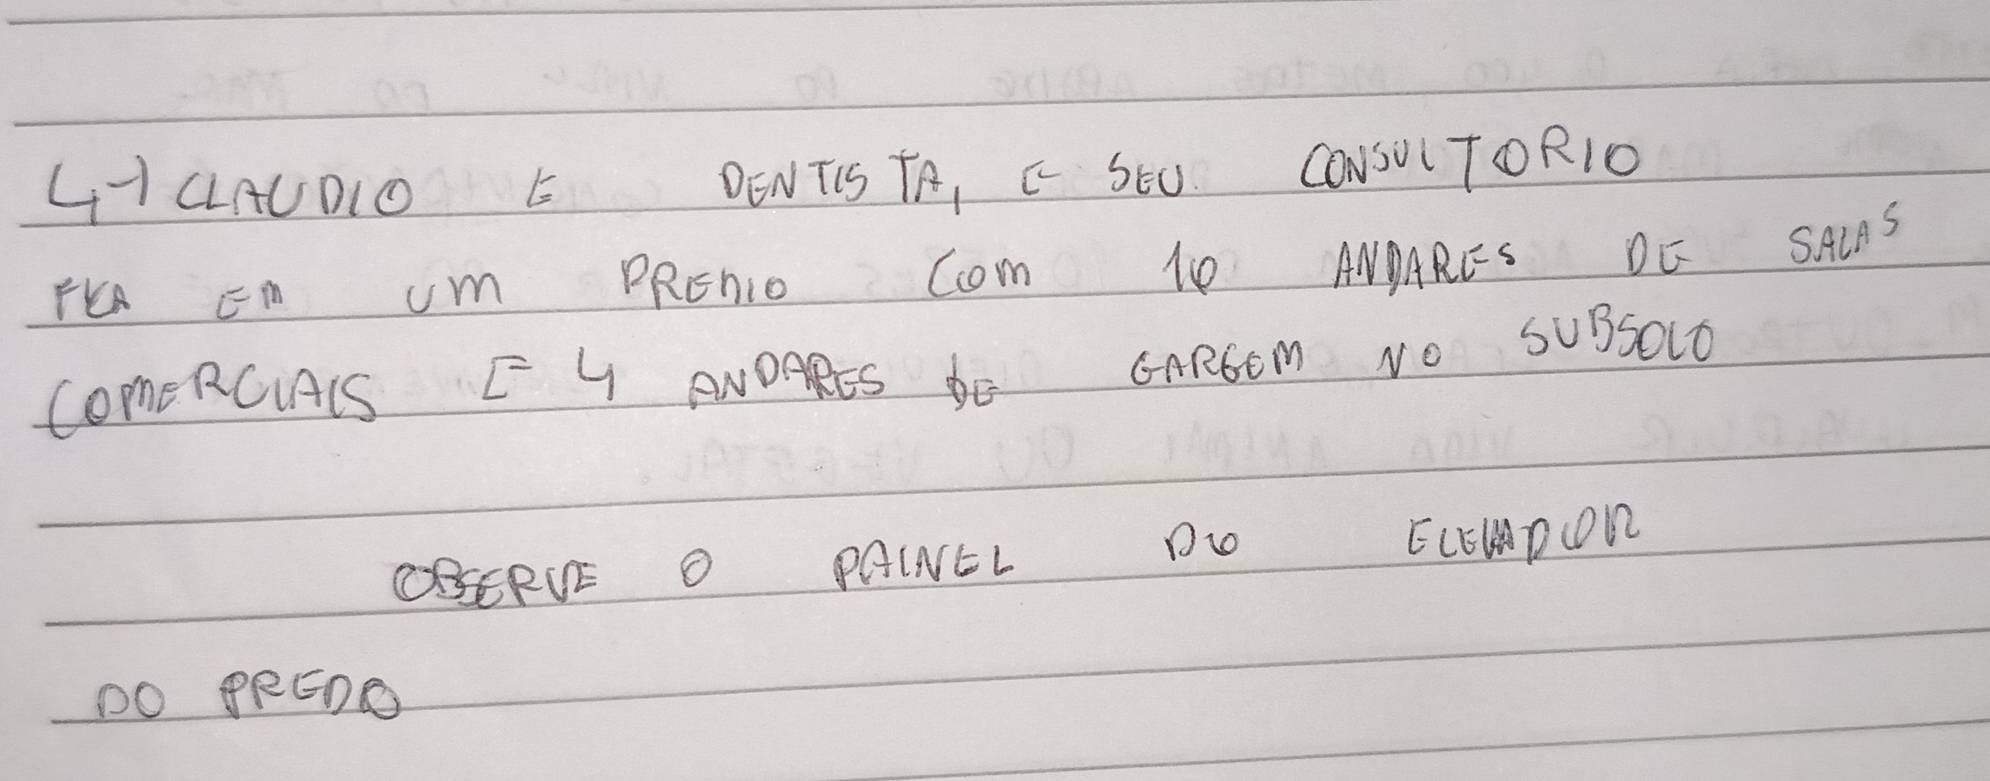 4-) CLAUDIO E DENTISTA, E SEU CONSULTORIO
FICA EM UM PREDIO COM 10 ANDARES DE SALAS
COMERCIAIS E 4 ANDARES DE GARGEM NO SUBSOLO
OBSERVE O PAINEL DO ELEVADOR
DO PREDO